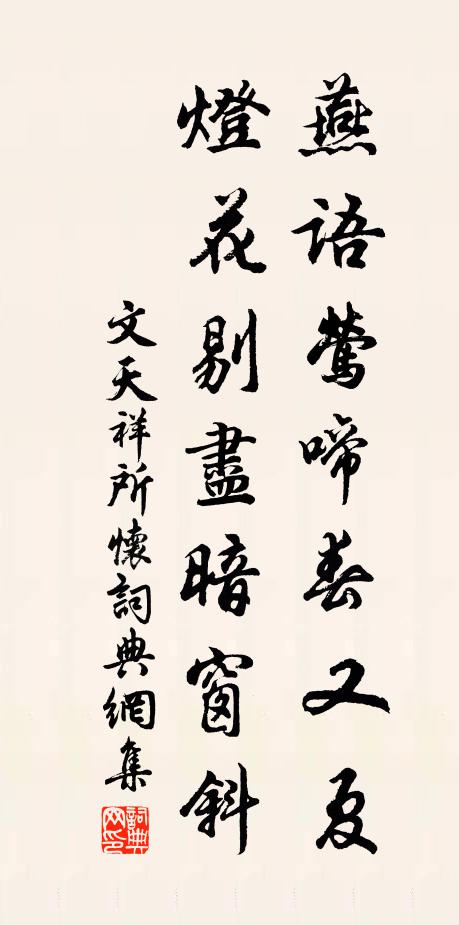 燕語鶯啼春又夏
燈花剔盡暗窗斜
文天祥所懷詞典網集
詞典网印